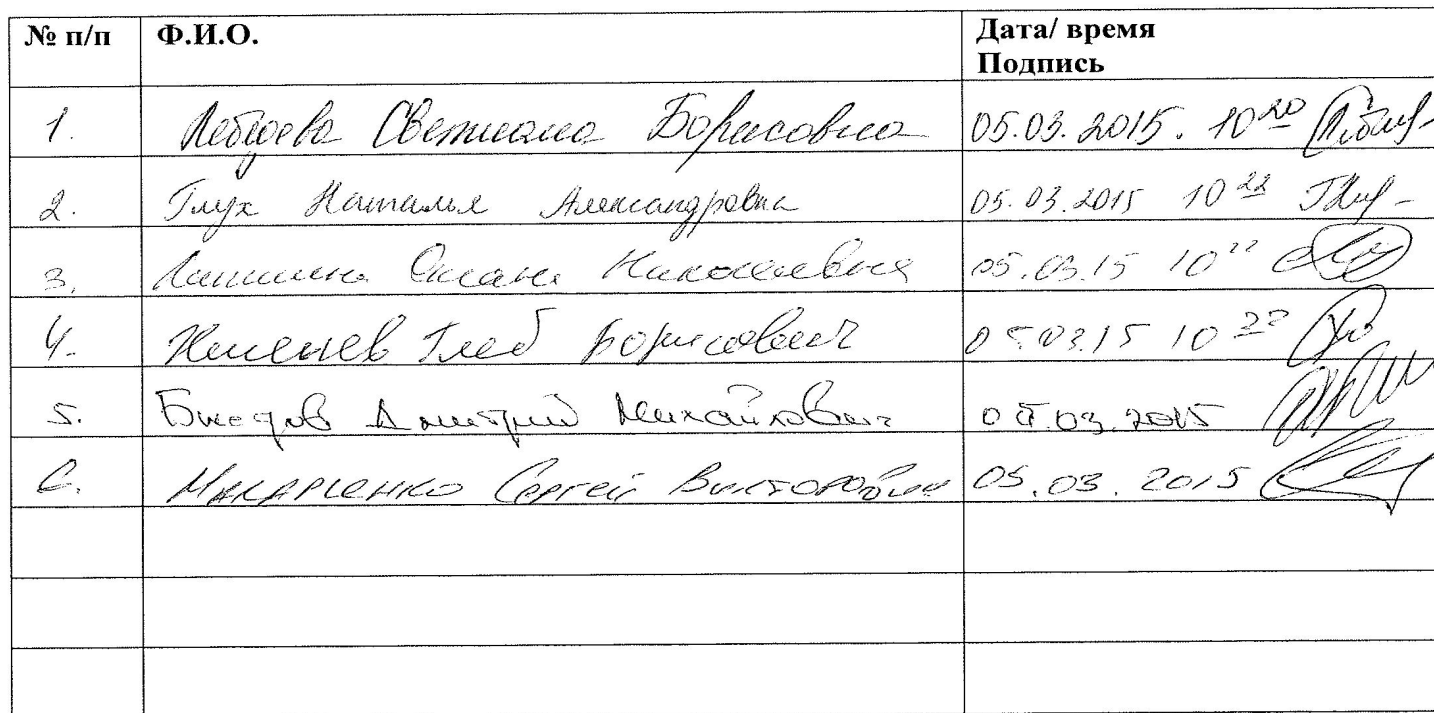 № п/п Ф.И.О. Дата/ время
Подпись
1. Светлана Борисовна 05.03.2015. 10 20
2. Глух Наталья Александровна 05.03.2015 10 22
3. Оксана Николаевна 05.03.15 10 22
4. Глеб Борисович 05.03.15 10 22
5. Дмитрий Михайлович 05.03.2015
6. Макариенко Сергей Викторович 05.03.2015